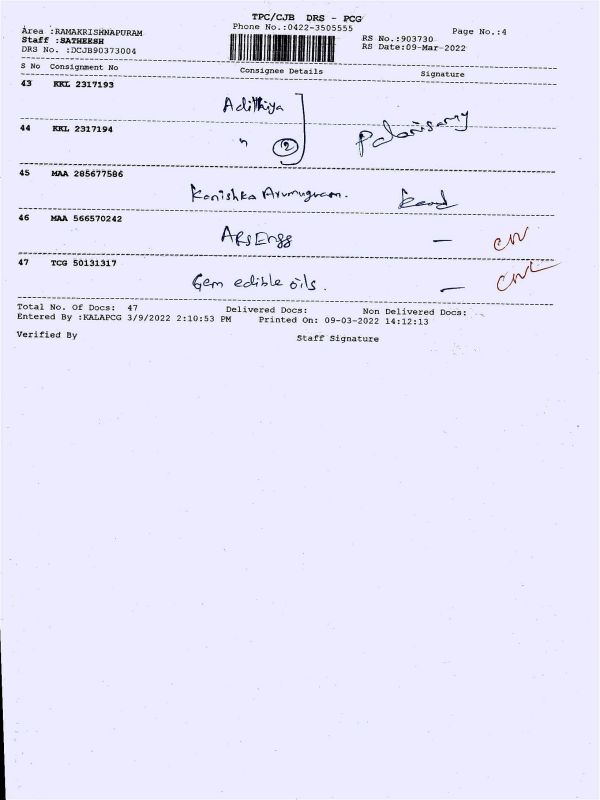 TPC/CJB DRS - PCG
Area :RAMAKRISHNAPURAM Phone No.:0422-3505555 Page No.:4
Staff :SATHEESH RS No.:903730
DRS No. :DCJB90373004 RS Date:09-Mar-2022
S No Consignment No Consignee Details Signature
43 KKL 2317193
Adithiya
44 KKL 2317194
" 2 Palanisamy
45 MAA 285677586
Kanishka Arumugham.
46 MAA 566570242
ARS Engg —
47 TCG 50131317
Gem edible oils. —
Total No. Of Docs: 47 Delivered Docs: Non Delivered Docs:
Entered By :KALAPCG 3/9/2022 2:10:53 PM Printed On: 09-03-2022 14:12:13
Verified By Staff Signature